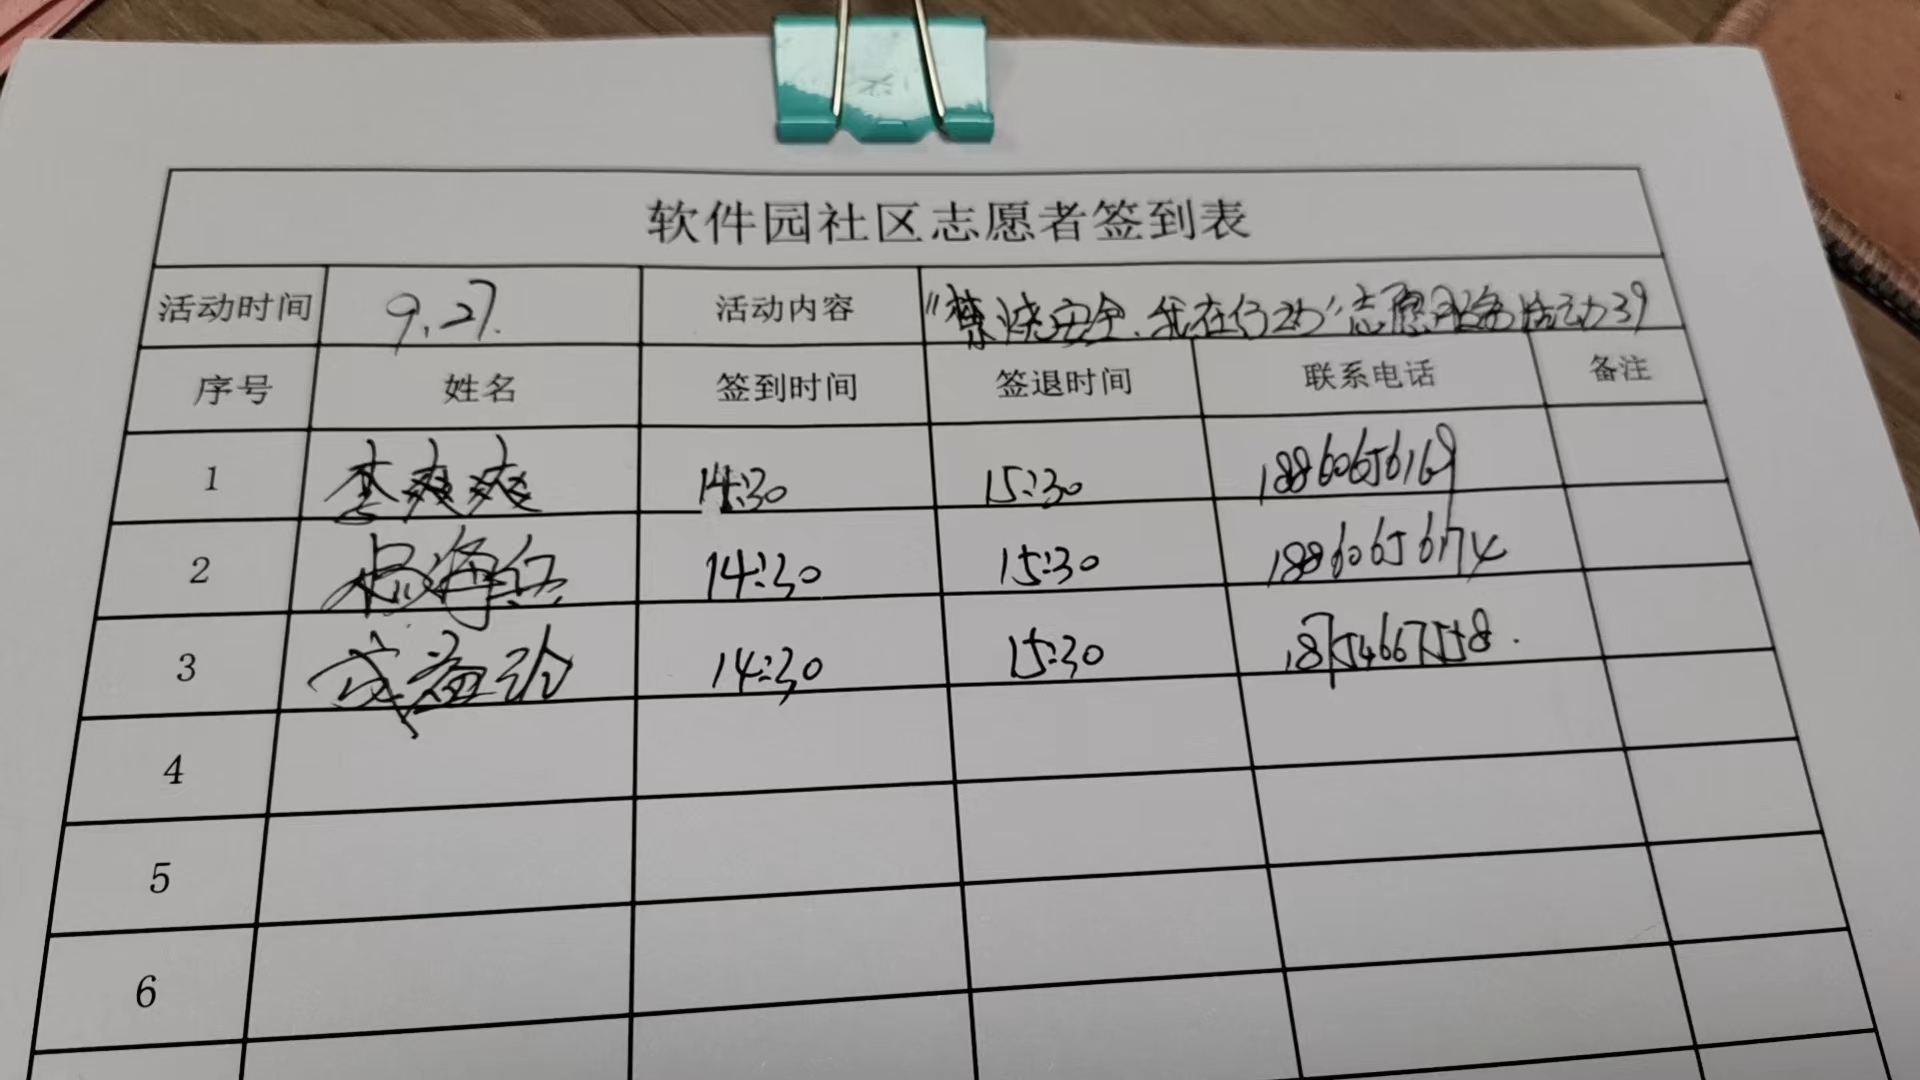 软件园社区志愿者签到表
活动时间 9.27. 活动内容 "禁烧安全、我在行动"志愿服务活动39
序号 姓名 签到时间 签退时间 联系电话 备注
1 李爽爽 14:30 15:30 18860656169
2 14:30 15:30 18860656174
3 14:30 15:30 18754667558.
4
5
6